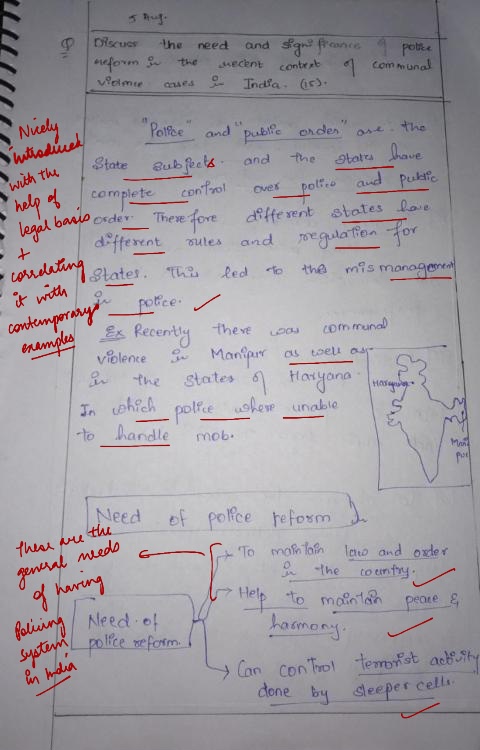 5 Aug.
Q Discuss the need and significance of police
reform in the recent context of communal
violence cases in India. (15).
"Police" and "public order" are the
State subjects and the states have
complete control over police and public
order There fore different states have
different rules and regulation for
States. This led to the mis management
in police.
Ex Recently there was communal
violence in Manipur as well as
in the states of Haryana.
In which police where unable
to handle mob.
Haryana
Mani
pur
Nicely
introduced
with the
help of
legal basis
+
correlating
it with
contemporary
examples
Need of police reform
Need of
police reform.
To maintain law and order
in the country.
Help to maintain peace &
harmony.
Can control terrorist activity
done by sleeper cells.
These are the
general needs
of having
Policing
system
in India